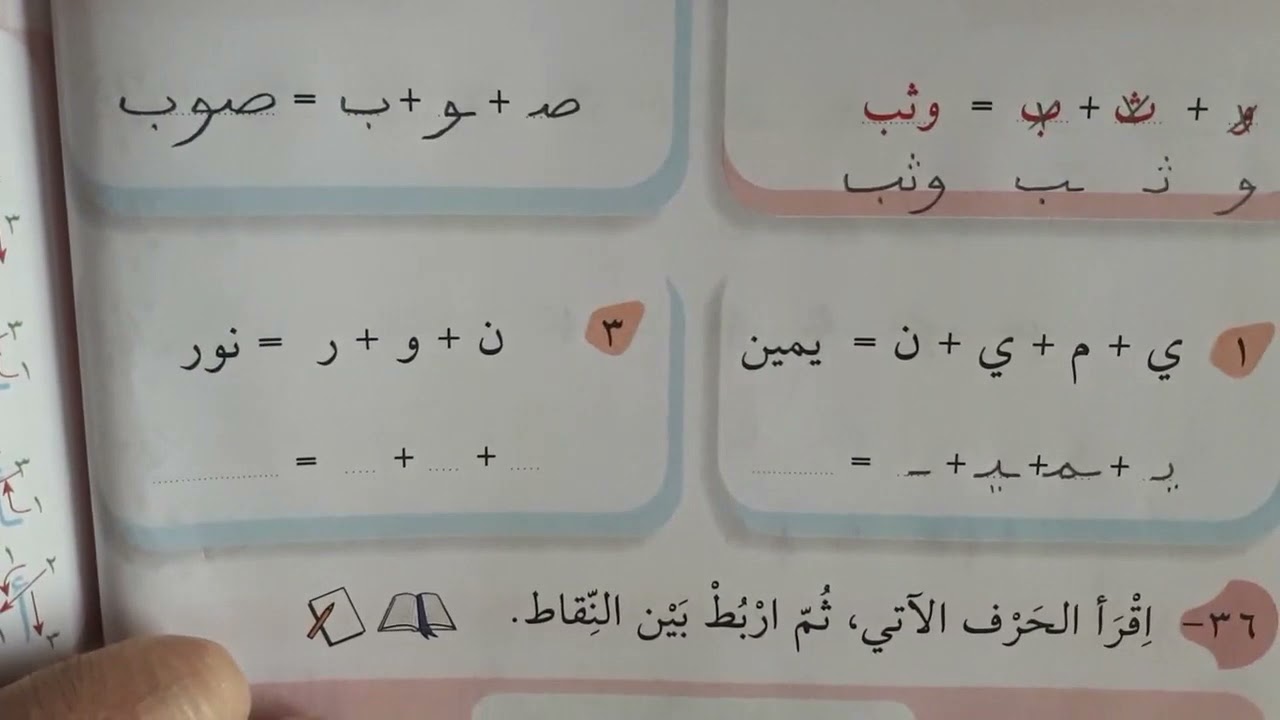 و + ث + ب = وثب
و ثـ ـب وثب
صـ + ـو + ب = صوب
١
ي + م + ي + ن = يمين
يـ + ـمـ + ـيـ + ـ =
٣
ن + و + ر = نور
+ + =
٣٦- اِقْرَأ الحَرْف الآتي، ثُمّ ارْبُطْ بَيْن النِّقاط.